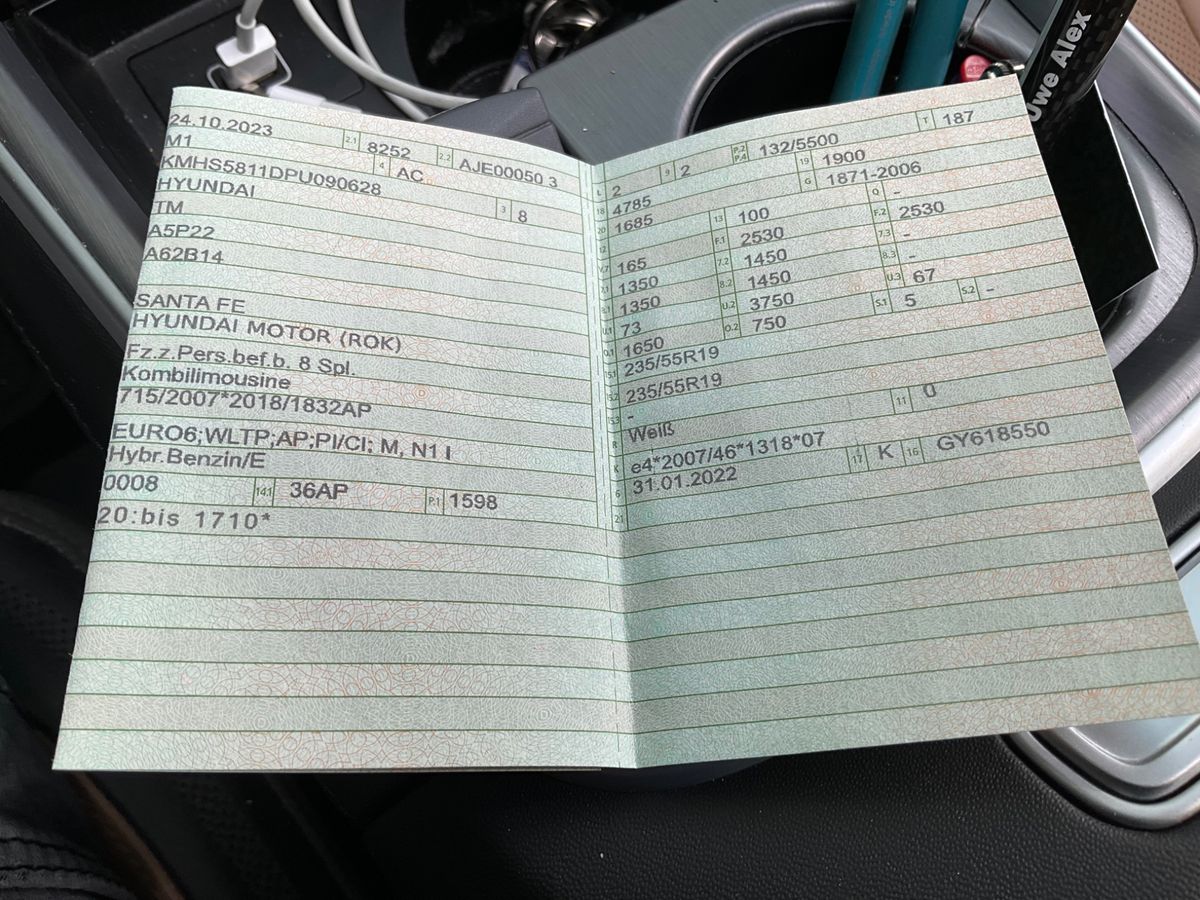 24.10.2023 2.1 8252 2.2 AJE00050 3
M1 4 AC
KMHS5811DPU090628 3 8
HYUNDAI
TM
A5P22
A62B14
SANTA FE
HYUNDAI MOTOR (ROK)
Fz.z.Pers.bef.b. 8 Spl.
Kombilimousine
715/2007*2018/1832AP
EURO6;WLTP;AP;PI/CI; M, N1 I
Hybr.Benzin/E
0008 14.1 36AP P.1 1598
20:bis 1710*
L 2 9 2 P.2 P.4 132/5500 T 187
18 4785 19 1900
20 1685 G 1871-2006
12 13 100 Q -
V.7 165 F.1 2530 F.2 2530
7.1 1350 7.2 1450 7.3 -
8.1 1350 8.2 1450 8.3 -
U.1 73 U.2 3750 U.3 67
O.1 1650 O.2 750 S.1 5 S.2 -
235/55R19
235/55R19
-
R Weiß 11 0
K e4*2007/46*1318*07
6 31.01.2022 17 K 16 GY618550
21
Uwe Alex